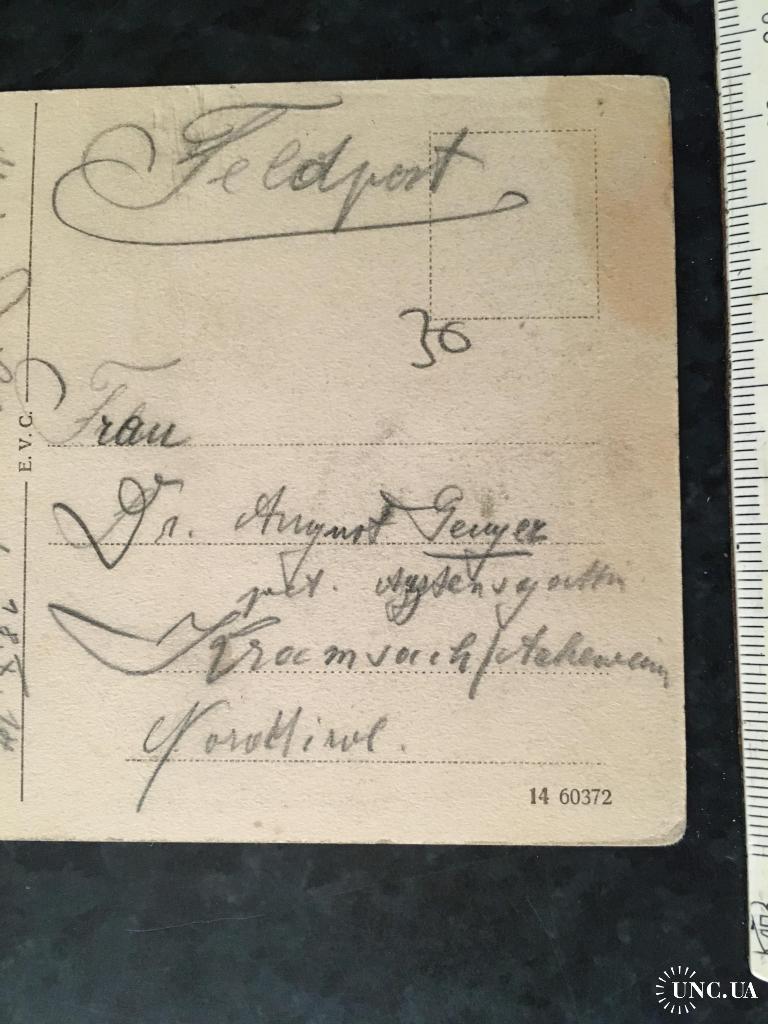 Feldpost
30
Frau
Dr. August Geuyer
Kramsach/Achenrain
Nordtirol.
E. V. C.
14 60372
UNC.UA